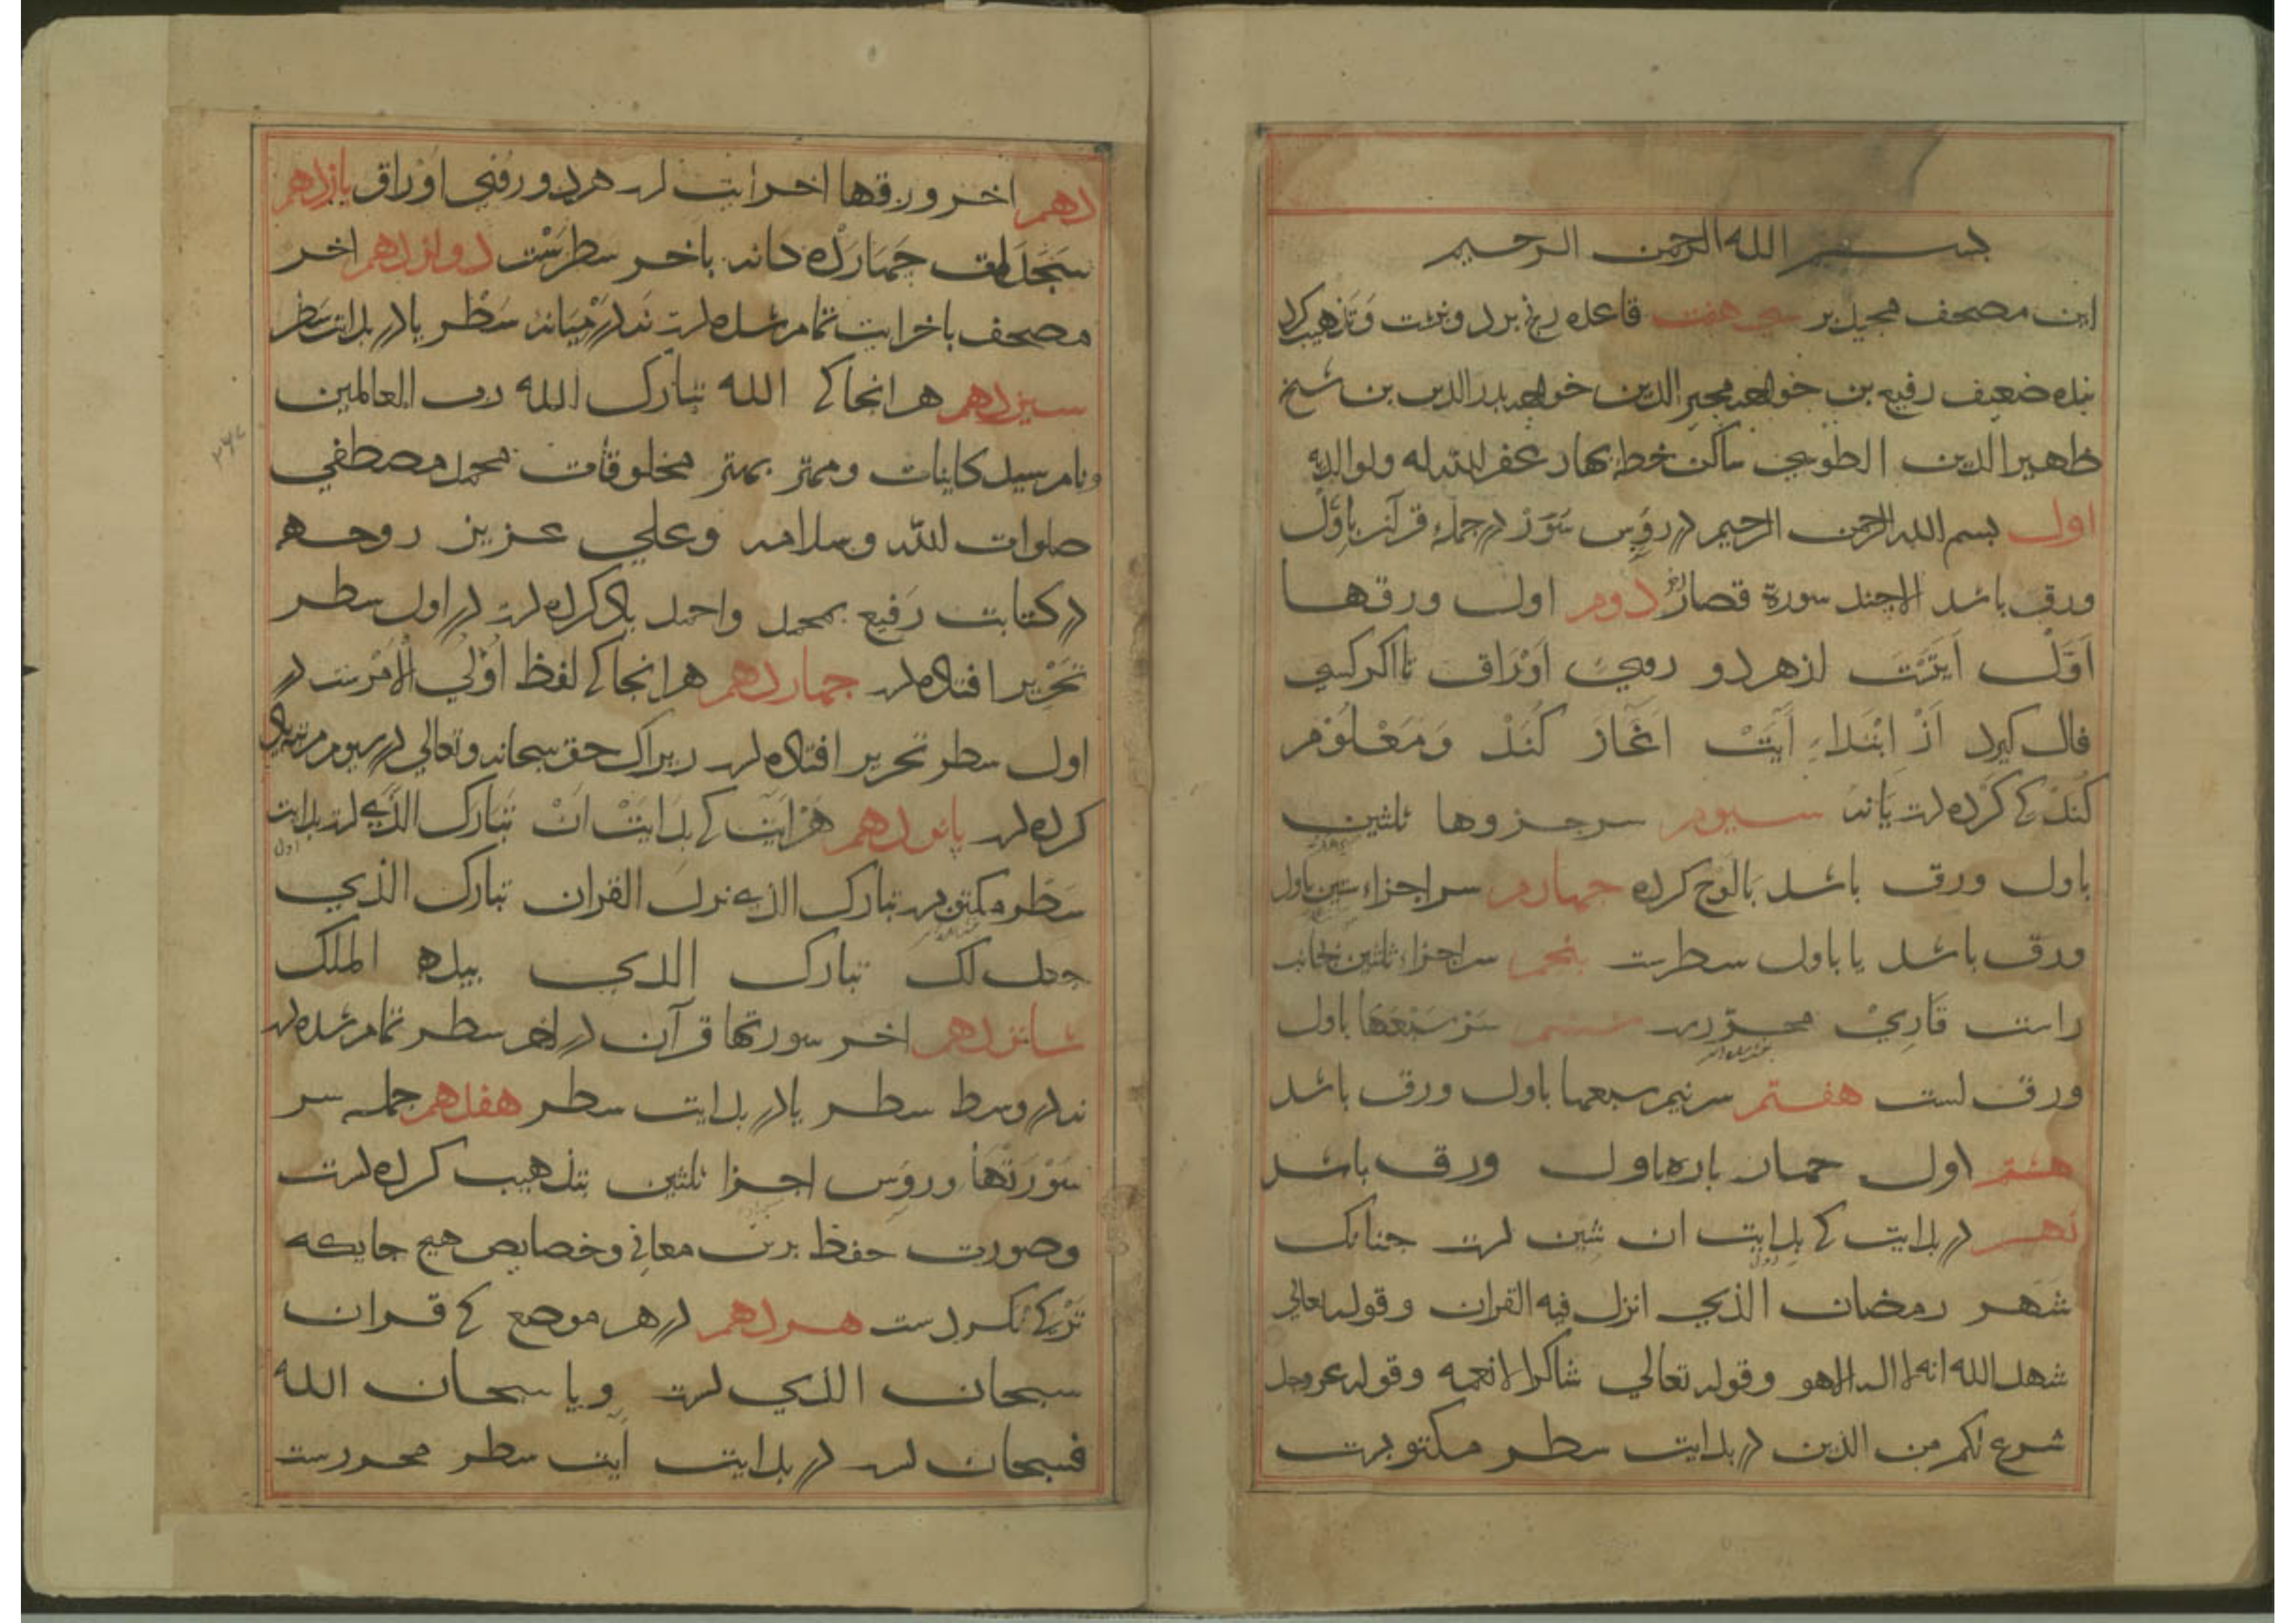 بسم الله الرحمن الرحيم
این مصحف مجید بر سی هفت قاعده بنشت وتذهیب کرد
بنده ضعیف رفیع بن خواجه مجیر الدین خواجه بدر الدین بن شیخ
ظهیر الدین الطوبی ساکن خطه بهار غفر الله له ولوالدیه
اول بسم الله الرحمن الرحیم در رؤس سور در جمله قرآن باول
ورق باشد الا چند سورة قصار دوم اول ورقها
اول ایتست از هر دو روی اوراق تا اکر کسی
فال کیرد از ابتداء ایت اغاز کند ومعلوم
کند کی کرده است یانه سیوم سر جزوها ثلثین
باول ورق باشد بالوح کرده جهارم سر اجزاء ستین باول
ورق باشد یا باول سطرست بنجم سر اجزاء ثلثین بجانب
راست قاری محررست ششم سر سبعها باول
ورق است هفتم سر نیم سبعها باول ورق باشد
هشتم اول جهار باره باول ورق باشد
نهم در بدایت کی بدایت ان شین است جنانک
شهر رمضان الذی انزل فیه القران وقوله تعالی
شهد الله انه لا اله الا هو وقوله تعالی شاکرا لانعمه وقوله عز وجل
شرع لکم من الدین در بدایت سطر مکتوبست
دهم اخر ورقها اخر ایت است هر دو روی اوراق یازدهم
جهارده کانه باخر سطرست دوازدهم اخر
مصحف باخر ایت تمام شده است نه در میانه سطر یا در بدایت سطر
سیزدهم هر انجا کی الله تبارک الله رب العالمین
ونام سید کاینات ومهتر بهتر مخلوقات محمد مصطفی
صلوات الله وسلامه وعلی عزیز روحه
در کتابت رفیع بمحمد واحمد یاد کرده است در اول سطر
تحریر افتاده است جهاردهم هر انجا کی لفظ اولی الامرست در
اول سطر تحریر افتاده است زیراک حق سبحانه وتعالی در سیوم مرتبه یاد
کرده است پانزدهم هر ایت کی بدایت ان تبارک الذی است بدایت
سطر مکتوبست تبارک الذی نزل القران تبارک الذی
جعل لک تبارک الذی بیده الملک
شانزدهم اخر سورتها قرآن در اخر سطر تمام شده است
نه در وسط سطر یا در بدایت سطر هفدهم جمله سر
سورتها ورؤس اجزا ثلثین بتذهیب کرده است
وصورت حفظ برین معانی وخصایص هیچ جایکه
ترکی نکردست هردهم در هر موضع کی قران
سبحان الذی است ویا سبحان الله
فسبحان است در بدایت ایت سطر محررست